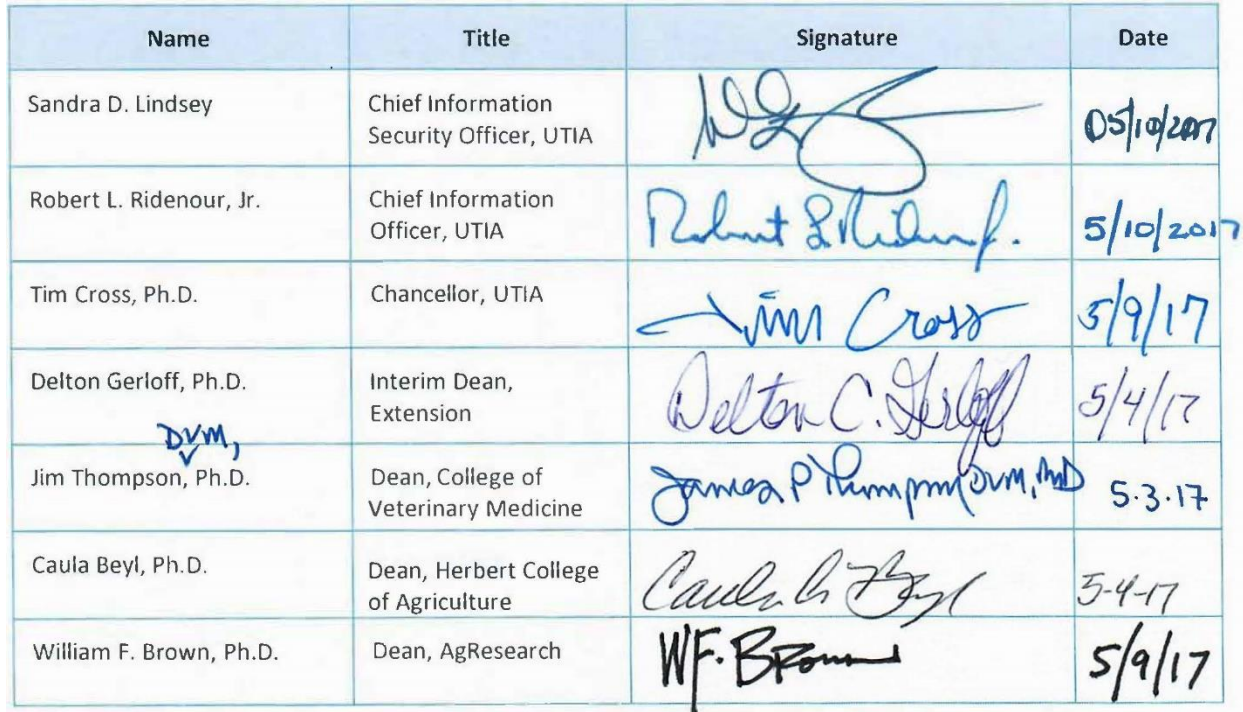 Name Title Signature Date
Sandra D. Lindsey Chief Information
Security Officer, UTIA 05/10/2017
Robert L. Ridenour, Jr. Chief Information
Officer, UTIA Robert L Ridenour Jr. 5/10/2017
Tim Cross, Ph.D. Chancellor, UTIA Tim Cross 5/9/17
Delton Gerloff, Ph.D. Interim Dean,
Extension Delton C. Gerloff 5/4/17
DVM,
Jim Thompson, Ph.D. Dean, College of
Veterinary Medicine James P Thompson DVM, PhD 5.3.17
Caula Beyl, Ph.D. Dean, Herbert College
of Agriculture Caula A Beyl 5-4-17
William F. Brown, Ph.D. Dean, AgResearch WF. Brown 5/9/17